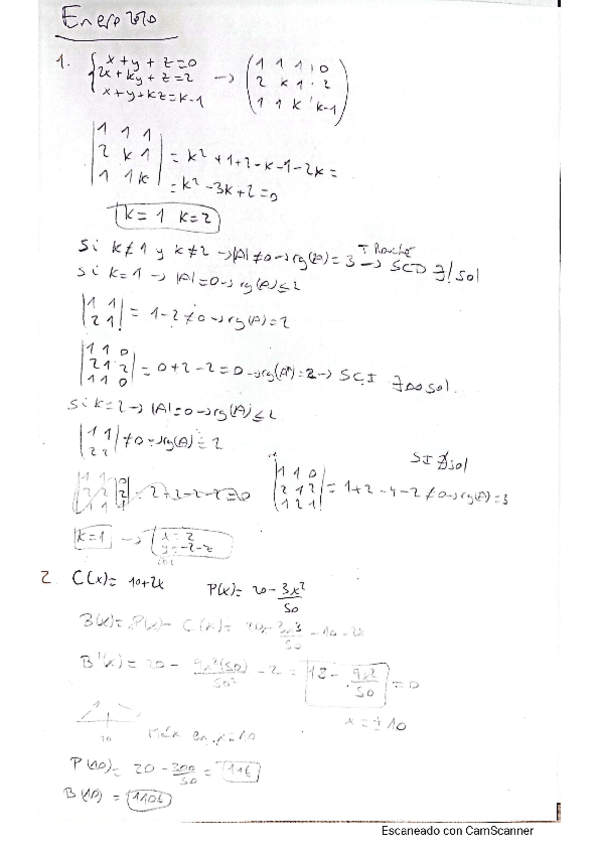 Enero 2020
1. { x+y+z=0
2x+ky+z=2
x+y+kz=k-1
→ ( 1 1 1 0
2 k 1 2
1 1 k k-1 )
| 1 1 1
2 k 1
1 1 k | = k²+1+2-k-1-2k=
= k²-3k+2=0
k=1 k=2
Si k≠1 y k≠2 → |A|≠0 → rg(A)=3 → SCD ∃! sol
Si k=1 → |A|=0 → rg(A)≤2
| 1 1
2 1 | = 1-2≠0 → rg(A)=2
| 1 1 0
2 1 2
1 1 0 | = 0+2-2=0 → rg(A*)=2 → SCI ∃∞ sol.
Si k=2 → |A|=0 → rg(A)≤2
≠0 → rg(A)=2
SI ∄ sol
| 1 1 0
2 1 2
1 2 1 | = 1+2-4-2≠0 → rg(A)=3
k=1 → { x=2
y=-2-z
2. C(x)= 10+2x P(x)= 20-3x²/50
B(x)= P(x)- C(x)=
B'(x)= 20 - 9x²(50)/50² - 2 = 18 - 9x²/50 =0
x=±10
10
Máx en
P(10)= 20 - 300/50 =
B(10) =
Escaneado con CamScanner